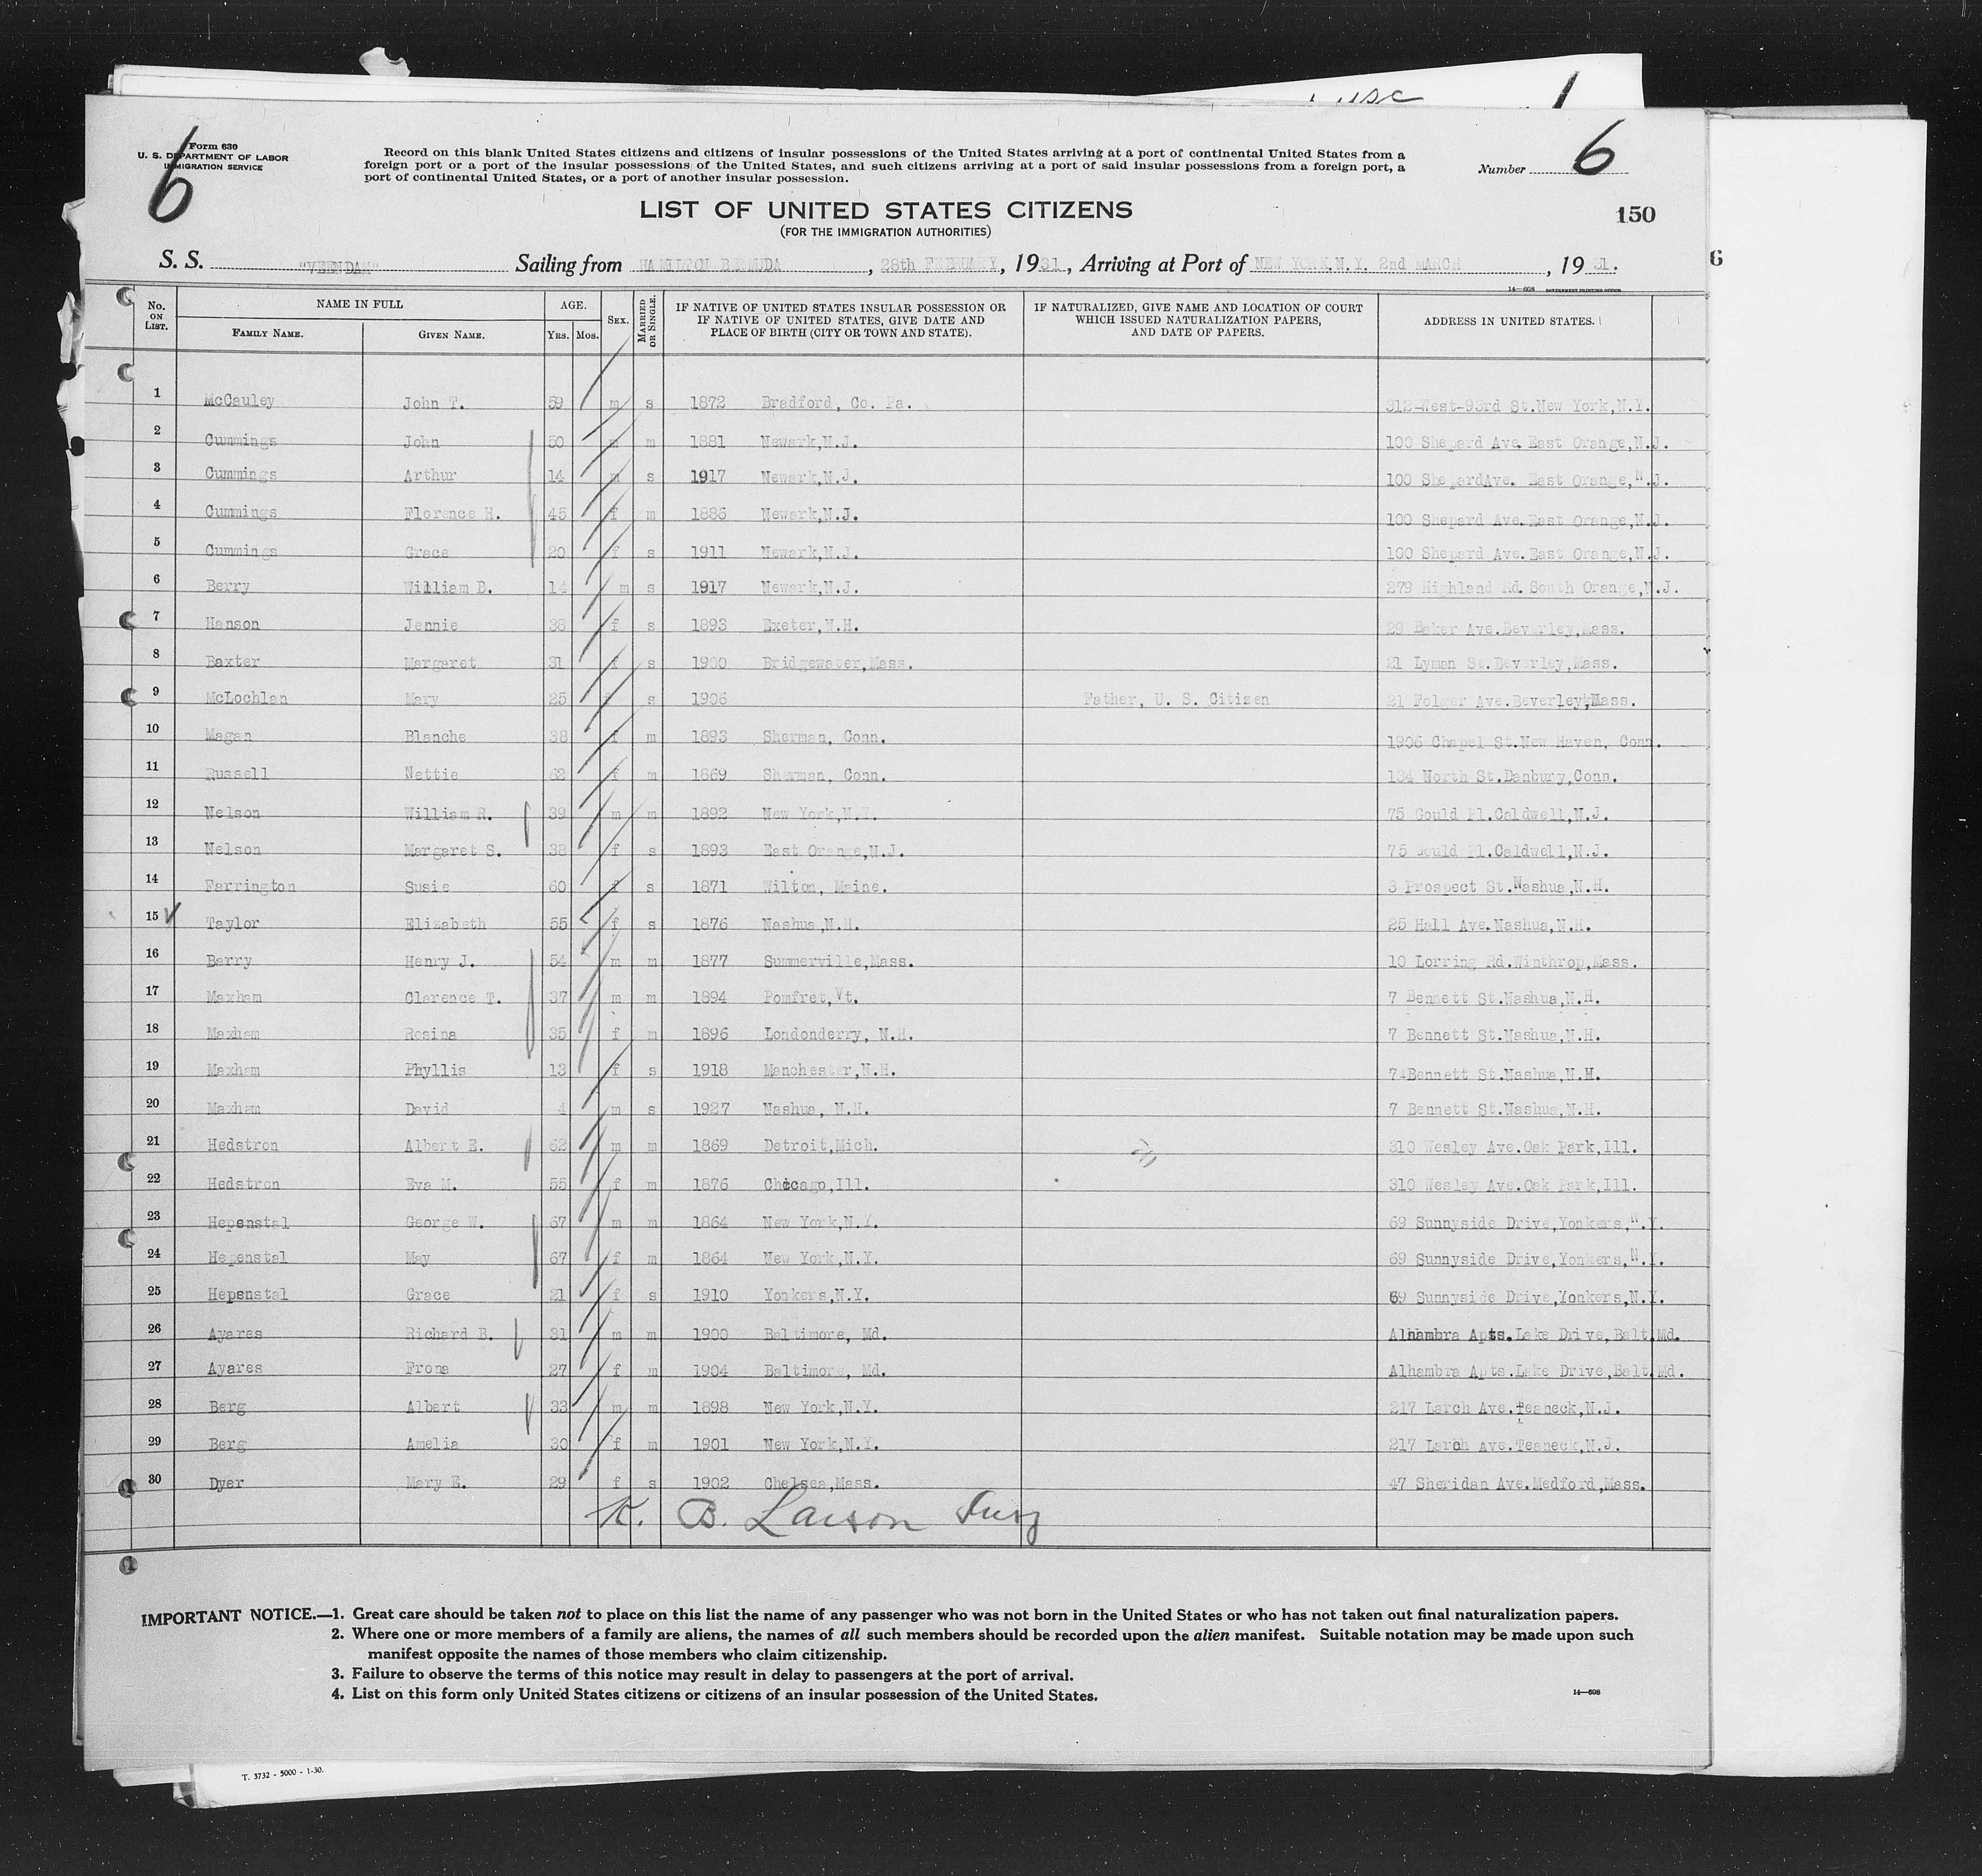 usc 1
6
Form 630
U. S. DEPARTMENT OF LABOR
IMMIGRATION SERVICE
Record on this blank United States citizens and citizens of insular possessions of the United States arriving at a port of continental United States from a
foreign port or a port of the insular possessions of the United States, and such citizens arriving at a port of said insular possessions from a foreign port, a
port of continental United States, or a port of another insular possession.
Number 6
LIST OF UNITED STATES CITIZENS
(FOR THE IMMIGRATION AUTHORITIES)
150
S. S. "VEENDAM" Sailing from HAMILTON BERMUDA, 28th FEBRUARY, 1931, Arriving at Port of NEW YORK,N.Y. 2nd MARCH, 19 31.
6
14—608 GOVERNMENT PRINTING OFFICE
No. ON LIST. NAME IN FULL FAMILY NAME. GIVEN NAME. AGE. YRS. MOS. SEX. MARRIED OR SINGLE. IF NATIVE OF UNITED STATES INSULAR POSSESSION OR IF NATIVE OF UNITED STATES, GIVE DATE AND PLACE OF BIRTH (CITY OR TOWN AND STATE). IF NATURALIZED, GIVE NAME AND LOCATION OF COURT WHICH ISSUED NATURALIZATION PAPERS, AND DATE OF PAPERS. ADDRESS IN UNITED STATES.
1 McCauley John T. 59 m s 1872 Bradford, Co. Pa. 312-West-93rd St.New York,N.Y.
2 Cummings John 50 m m 1881 Newark,N.J. 100 Shepard Ave. East Orange,N.J.
3 Cummings Arthur 14 m s 1917 Newark,N.J. 100 ShepardAve. East Orange,N.J.
4 Cummings Florence H. 45 f m 1886 Newark,N.J. 100 Shepard Ave.East Orange,N.J.
5 Cummings Grace 20 f s 1911 Newark,N.J. 100 Shepard Ave.East Orange,N.J.
6 Berry William B. 14 m s 1917 Newark,N.J. 279 Highland Rd. South Orange,N.J.
7 Hanson Jennie 38 f s 1893 Exeter,N.H. 29 Baker Ave.Beverley,Mass.
8 Baxter Margaret 31 f s 1900 Bridgewater,Mass. 21 Lyman St.Beverley,Mass.
9 McLochlan Mary 25 f s 1906 Father, U. S. Citizen 21 Folger Ave.Beverley,Mass.
10 Magan Blanche 38 f m 1893 Sherman, Conn. 1906 Chapel St.New Haven, Conn.
11 Russell Nettie 62 f m 1869 Sherman, Conn. 134 North St.Danbury,Conn.
12 Nelson William R. 39 m m 1892 New York,N.Y. 75 Gould Pl.Caldwell,N.J.
13 Nelson Margaret S. 38 f s 1893 East Orange,N.J. 75 Gould Pl.Caldwell,N.J.
14 Farrington Susie 60 f s 1871 Wilton, Maine. 3 Prospect St.Nashua,N.H.
15 Taylor Elizabeth 55 f s 1876 Nashua,N.H. 25 Hall Ave.Nashua,N.H.
16 Barry Henry J. 54 m m 1877 Summerville,Mass. 10 Lorring Rd.Winthrop,Mass.
17 Maxham Clarence T. 37 m m 1894 Pomfret,Vt. 7 Bennett St.Nashua,N.H.
18 Maxham Rosina 35 f m 1896 Londonderry, N.H. 7 Bennett St.Nashua,N.H.
19 Maxham Phyllis 13 f s 1918 Manchester,N.H. 7 Bennett St.Nashua,N.H.
20 Maxham David 4 m s 1927 Nashua, N.H. 7 Bennett St.Nashua,N.H.
21 Hedstron Albert E. 62 m m 1869 Detroit,Mich. 310 Wesley Ave.Oak Park,Ill.
22 Hedstron Eva M. 55 f m 1876 Chicago,Ill. 310 Wesley Ave.Oak Park,Ill.
23 Hepenstal George W. 67 m m 1864 New York,N.Y. 69 Sunnyside Drive,Yonkers,N.Y.
24 Hepenstal May 67 f m 1864 New York,N.Y. 69 Sunnyside Drive,Yonkers,N.Y.
25 Hepenstal Grace 21 f s 1910 Yonkers,N.Y. 69 Sunnyside Drive,Yonkers,N.Y.
26 Ayares Richard B. 31 m m 1900 Baltimore, Md. Alhambra Apts.Lake Drive,Balt.Md.
27 Ayares Frona 27 f m 1904 Baltimore, Md. Alhambra Apts.Lake Drive,Balt.Md.
28 Berg Albert 33 m m 1898 New York,N.Y. 217 Larch Ave.Teaneck,N.J.
29 Berg Amelia 30 f m 1901 New York,N.Y. 217 Larch Ave.Teaneck,N.J.
30 Dyer Mary E. 29 f s 1902 Chelsea,Mass. 47 Sheridan Ave.Medford,Mass.
K. B. Larson
IMPORTANT NOTICE.—1. Great care should be taken not to place on this list the name of any passenger who was not born in the United States or who has not taken out final naturalization papers.
2. Where one or more members of a family are aliens, the names of all such members should be recorded upon the alien manifest. Suitable notation may be made upon such
manifest opposite the names of those members who claim citizenship.
3. Failure to observe the terms of this notice may result in delay to passengers at the port of arrival.
4. List on this form only United States citizens or citizens of an insular possession of the United States.
14—608
T. 3732 - 5000 - 1-30.